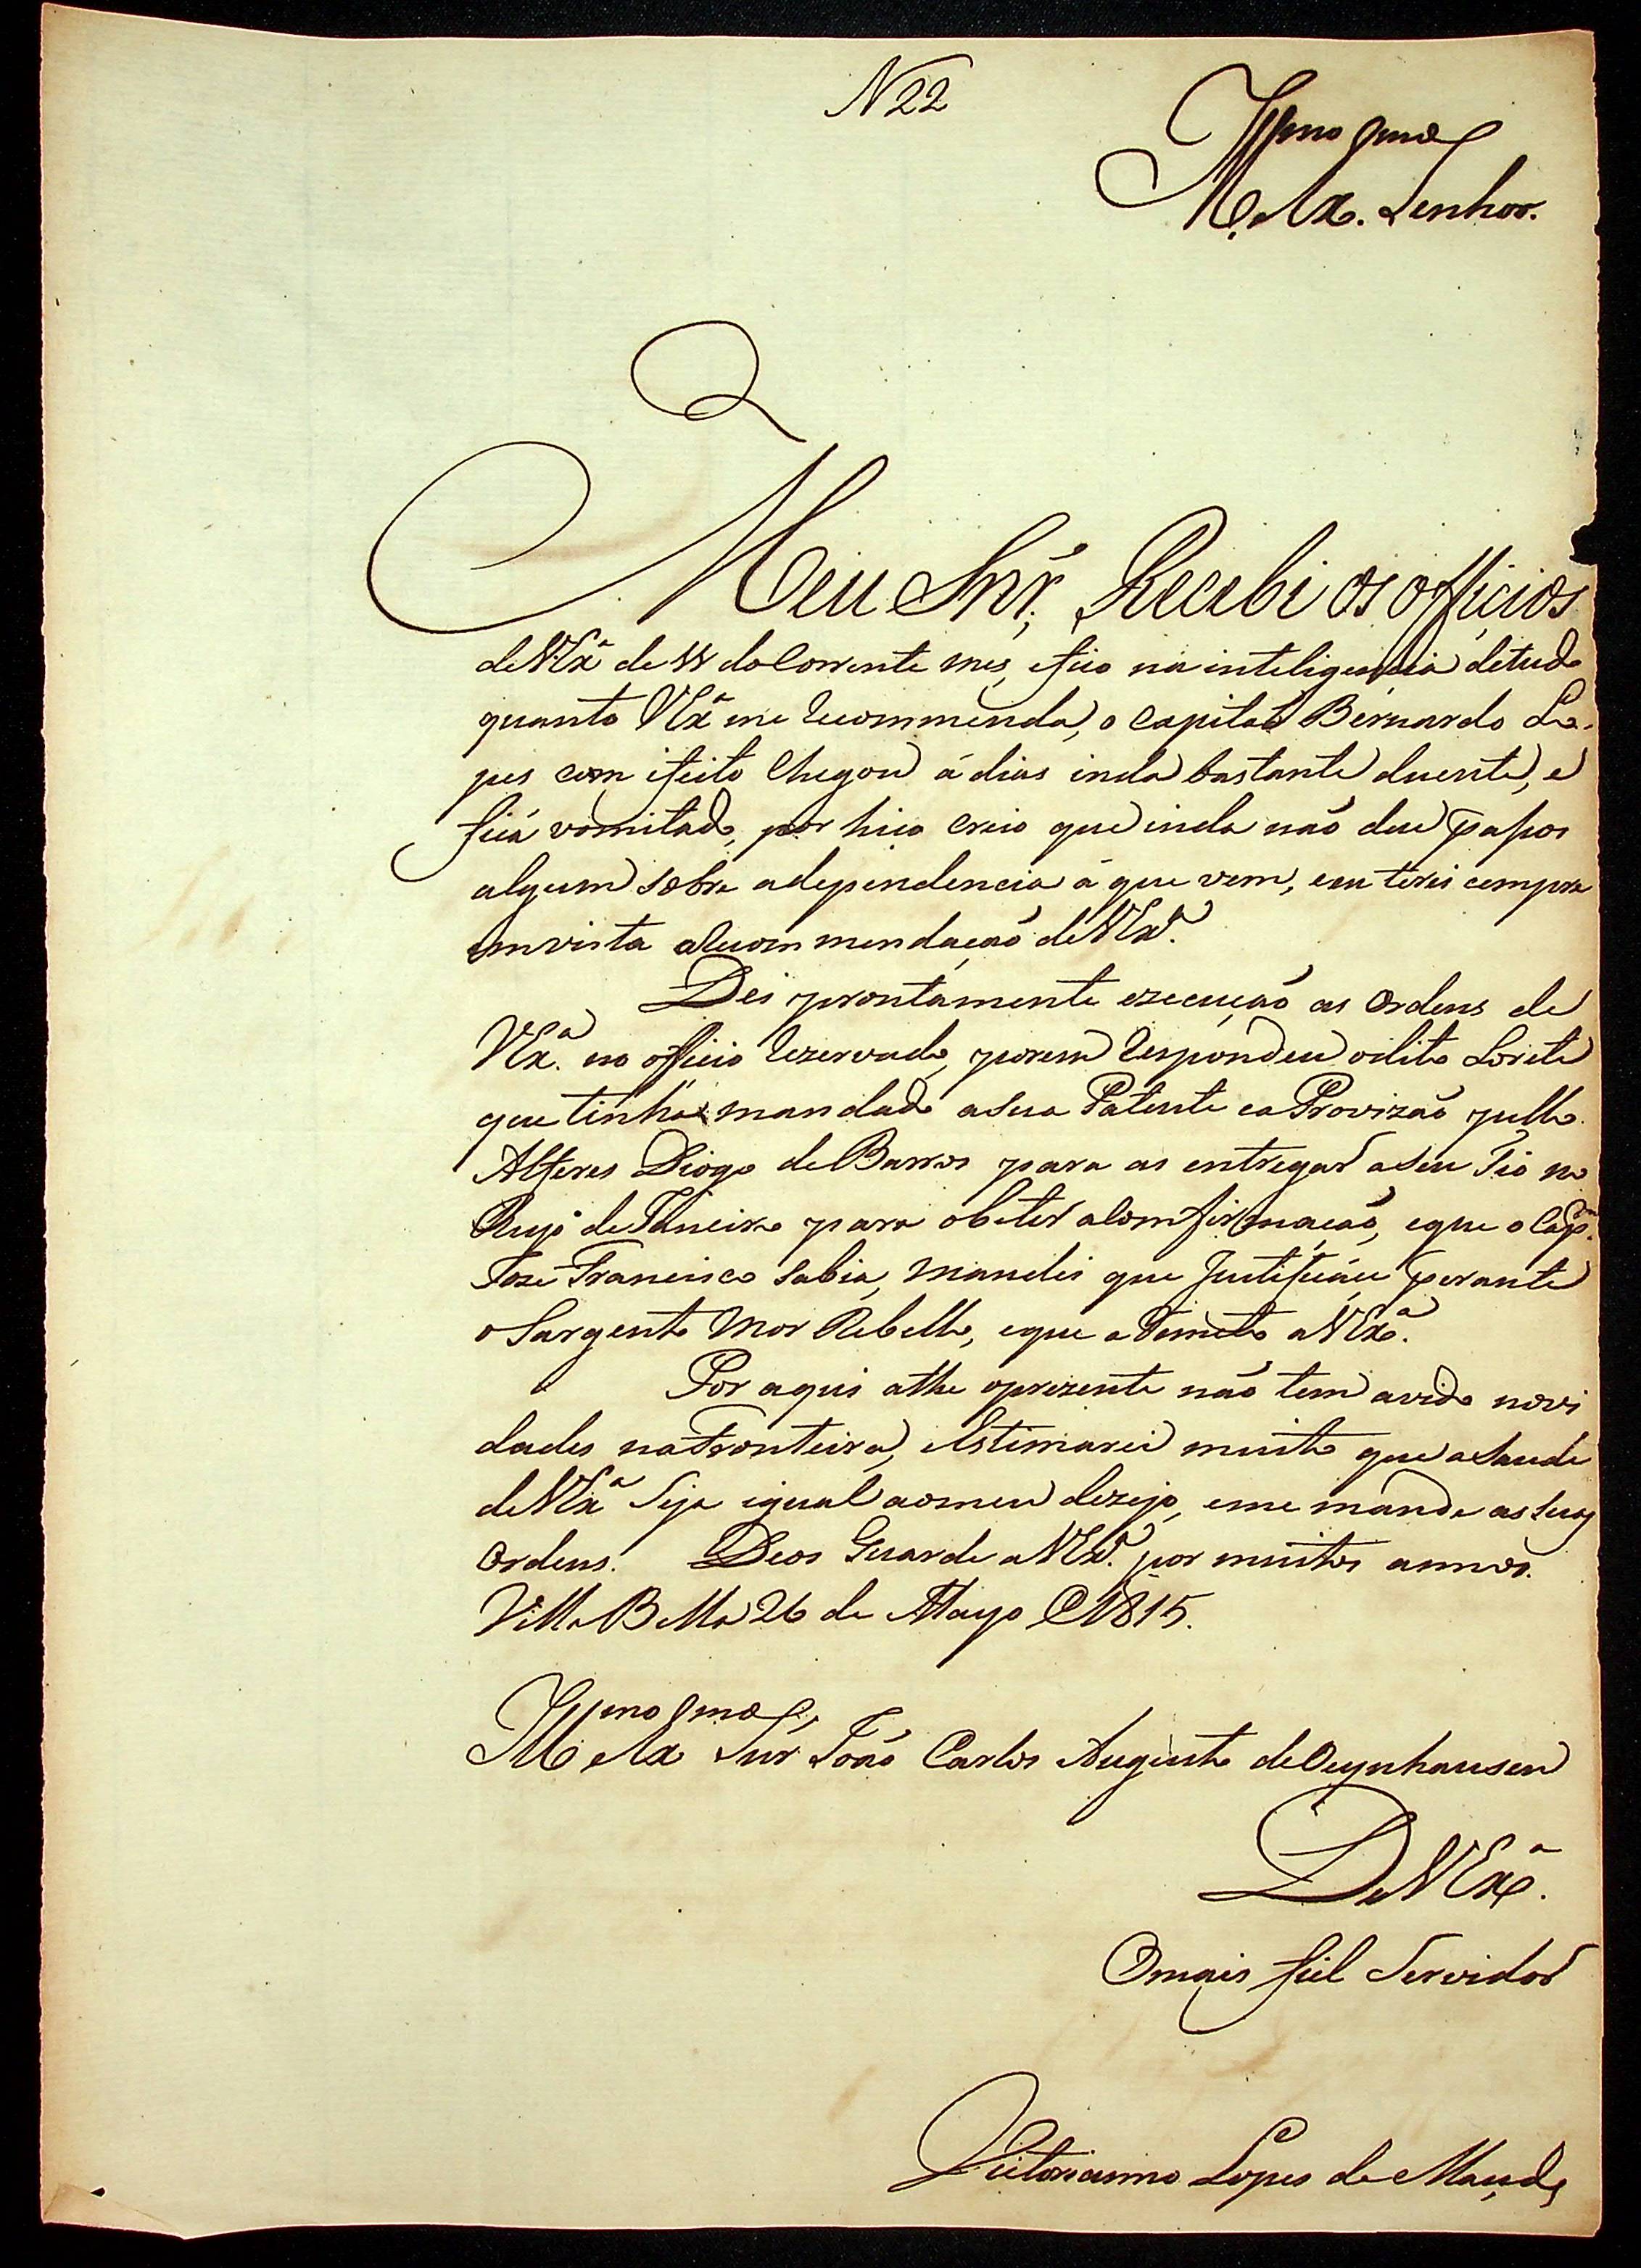 N 22
Illmo Exmo
Senhor.
Meu Snr. Recebi os officios
de VExa de 11 do Corrente mes, e fico na inteligencia de tudo
quanto VExa me recommenda, o Capitaõ Bernardo Lo-
pes com ifeito Chegou á dias inda bastante duente, e
ficá vomitado, por hiço creio que inda naõ deu paços
algum sobre adependencia á que vem, e eu terei cempre
em vista a Recommendaçaõ de VExa.
Dei prontamente ezecuçaõ as Ordens de
VExa. no officio Rezervado, porem Respondeu odito Lorete
que tinha mandado a sua Patente e a Provizaõ pello
Alferes Diogo de Barros para as entregar a seu Tio no
Rujo de Janeiro para obeter a Comfirmaçaõ, e que o Capm.
Joze Francisco Sabia, Mandei que Justificáce perante
o Sargento Mor Rebello, e que a Remeto a VExa.
Por aqui athe oprezente naõ tem avido novi
dades na Fronteira, Estimarei muito que a Saude
de VExa Seja igual ao meu dezejo, e me mande as suas
Ordens. Deos Guarde a VExa. por muitos annos.
Villa Bella 26 de Mayo de 1815.
Illmo Exmo
Snr João Carlos Augusto de Oeynhausen
De VExa.
O mais fiel Servidor
Victorianno Lopes de Maçedo